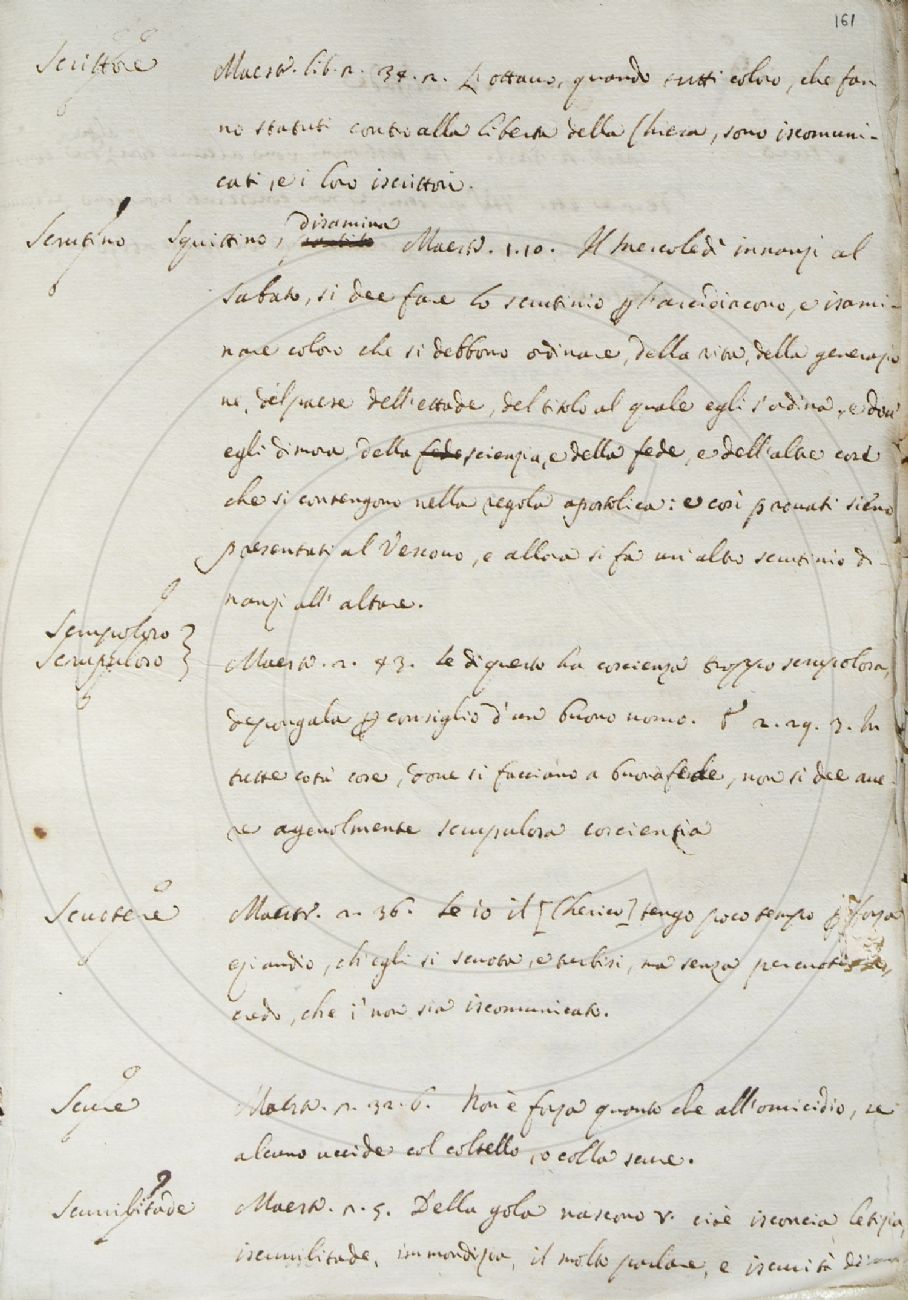 161
Scrittore Maestr. lib. 2. 34. 2. L'ottavo, quando tutti coloro, che fan-
no statuti contro alla libertà della Chiesa, sono iscomuni-
cati, e i loro iscrittori.
Scrutino Squittino, disamina Maestr. 1.10. Il mercoledì innanzi al
Sabato, si dee fare lo scrutinio p l'arcidiacono, e isami-
nare coloro che si debbono ordinare, della vita, della generazio
ne, del paese dell'ettade, del titolo al quale egli s'ordina, e dove
egli dimora, della fede scienzia, e della fede, e dell'altre cose
che si contengono nella regola apostolica: e così provati sieno
presentati al Vescovo, e allora si fa un'altro scrutinio di-
nanzi all'altare.
Scrupoloso
Scrupuloso } Maestr. 2. 43. Se di questo ha coscienza troppo scrupolosa,
dipongala p consiglio d'un buono uomo. E 2. 29. 3. In
tutte cotà cose, dove si facciano a buona fede, non si dee ave-
re agevolmente scrupulosa coscienzia
Scuotere Maestr. 2. 36. Se io il [Cherico] tengo poco tempo p forza
eziandio, ch'egli si scuota, e turbisi, ma senza
credo, che i' non sia iscomunicato.
Scure Maestr. 2. 32. 6. Non è forza quanto che all'omicidio, se
alcuno uccide col coltello, o colla scure.
Scurrilitade Maestr. 2. 5. Della gola nascono v. cioè isconcia letizia,
iscurrilitade, immondizia, il molto parlare, e iscurità di